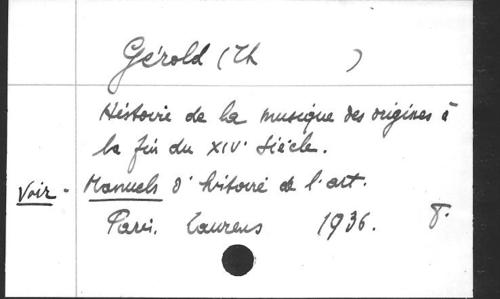 Gérold (Th )
Histoire de la musique des origines à
la fin du XIVe siècle.
Voir - Manuels d'histoire de l'art.
Paris. Laurens 1936. 8.